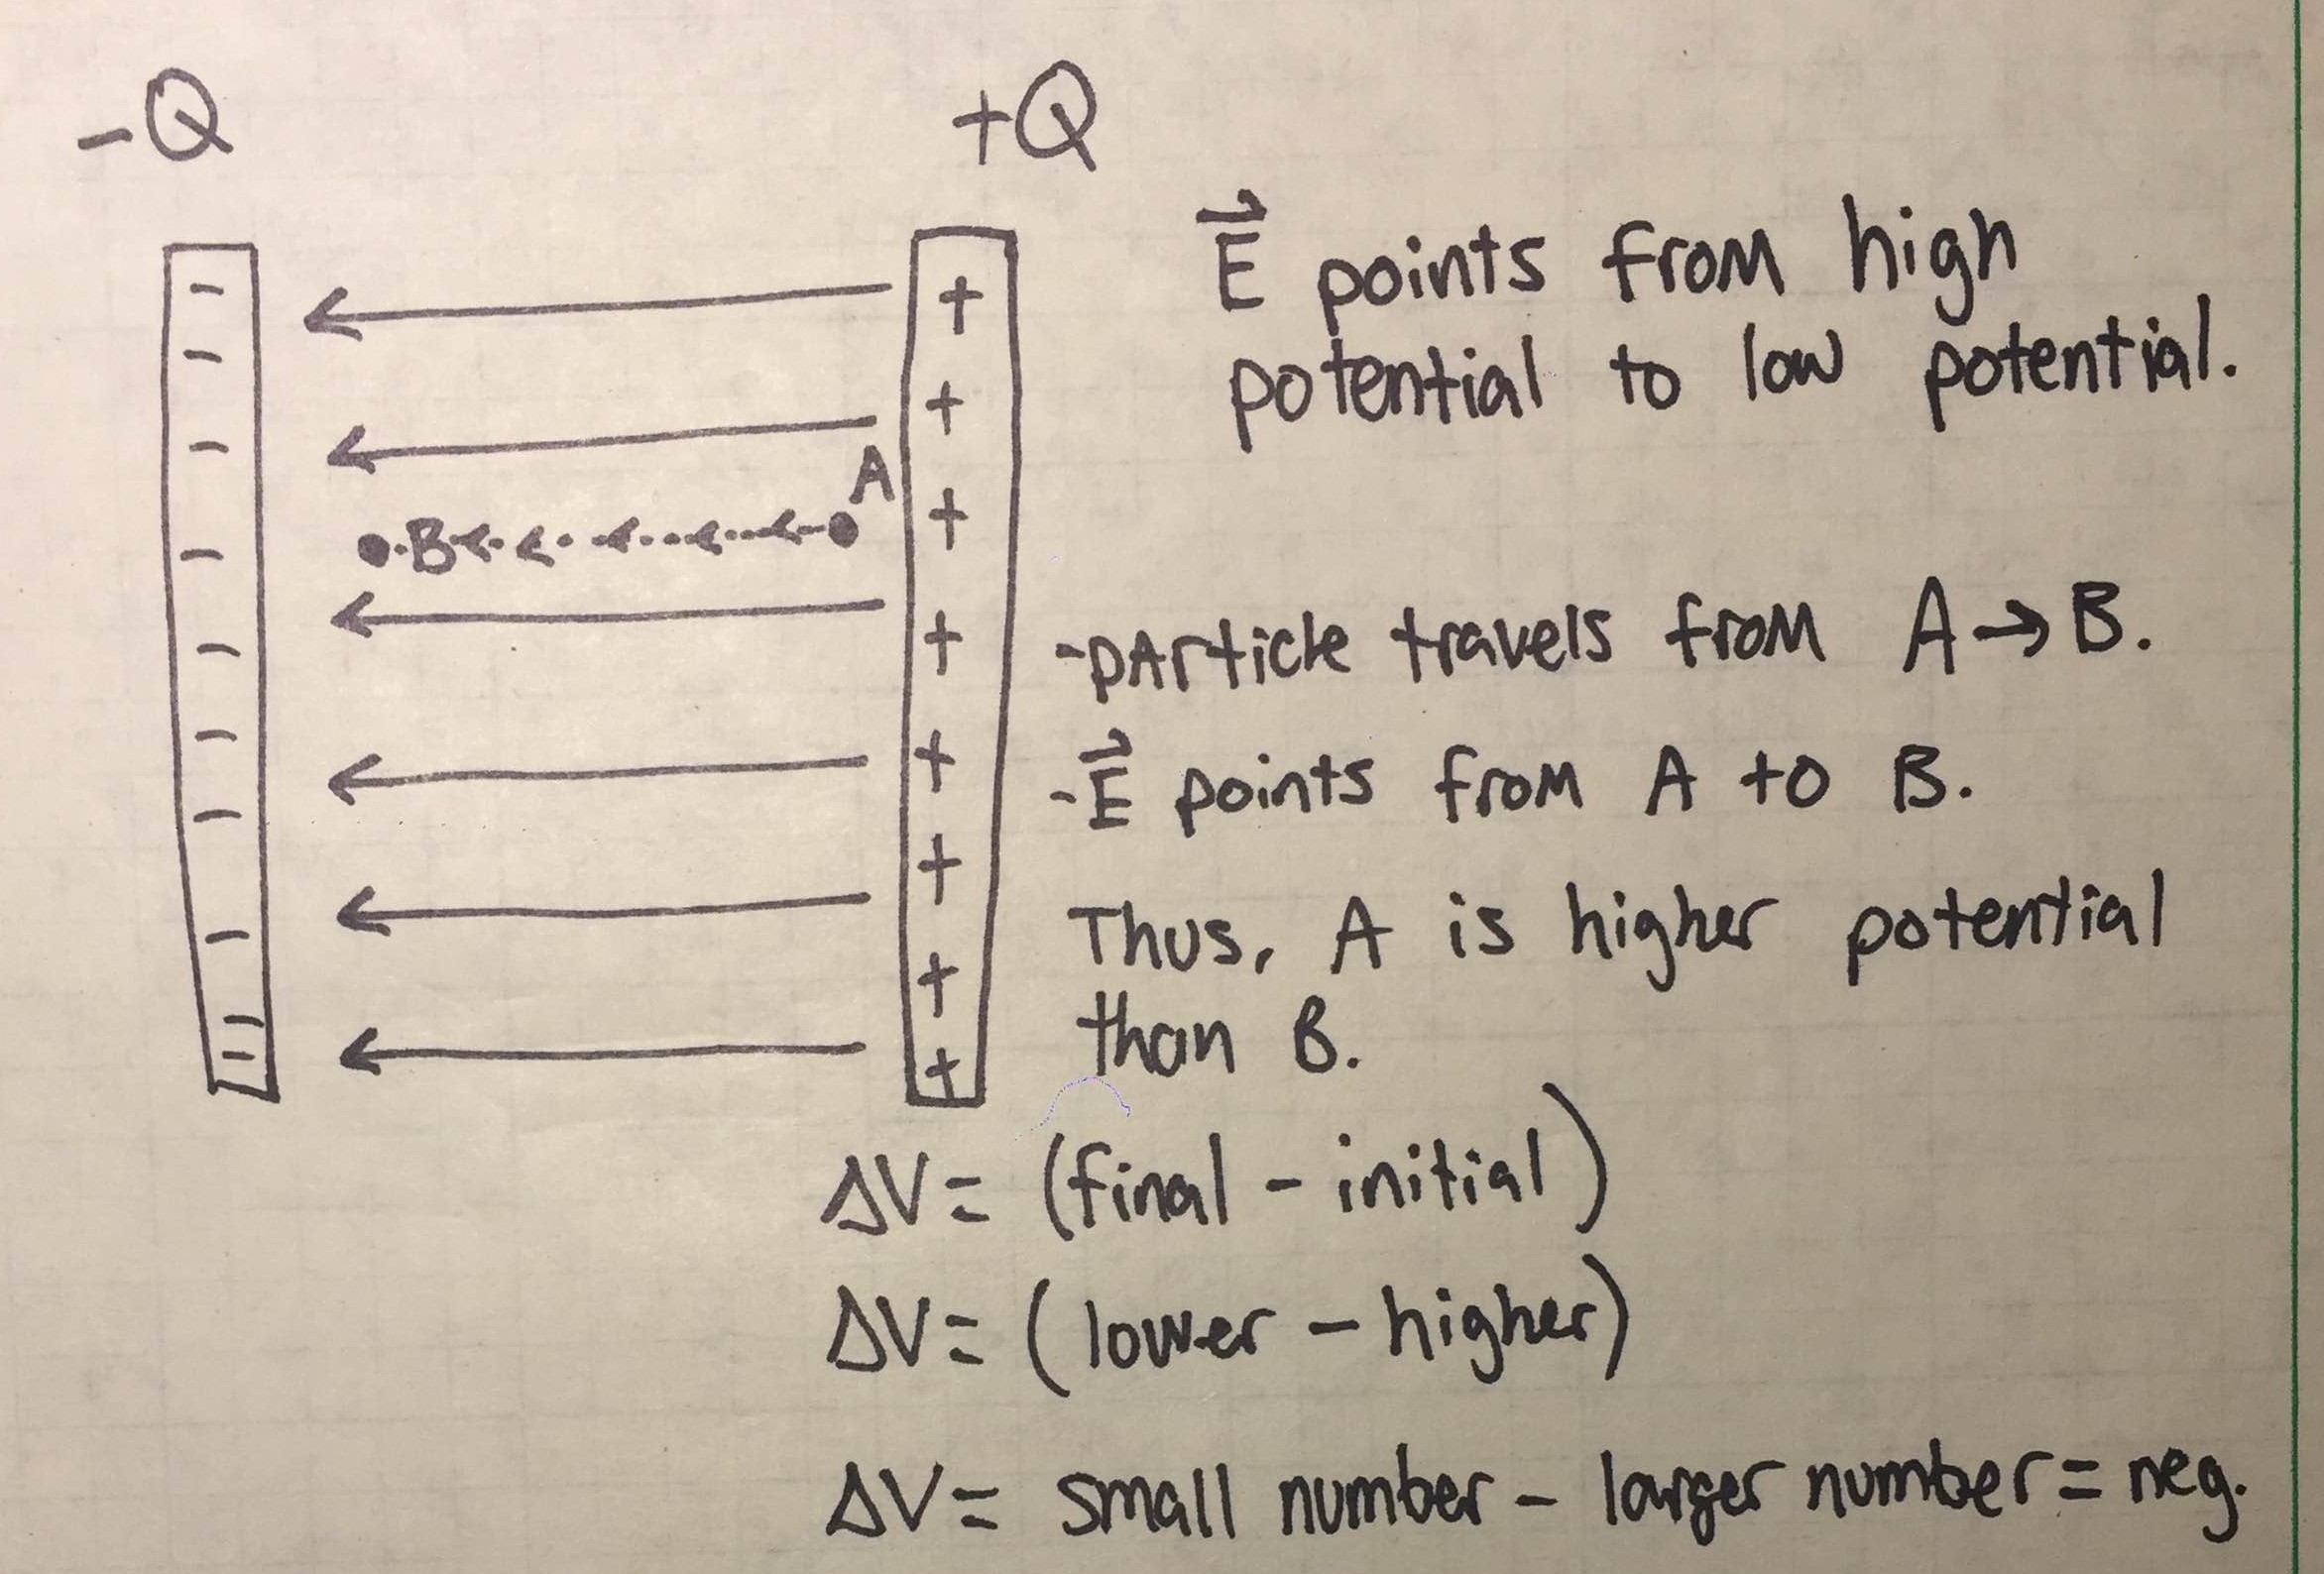 -Q +Q
E⃗ points from high
potential to low potential.
- - - - - - - - - -
+ + + + + + + +
A
B
-pArticle travels from A→B.
-E⃗ points from A to B.
Thus, A is higher potential
than B.
ΔV= (final - initial)
ΔV= (lower - higher)
ΔV= small number - larger number = neg.